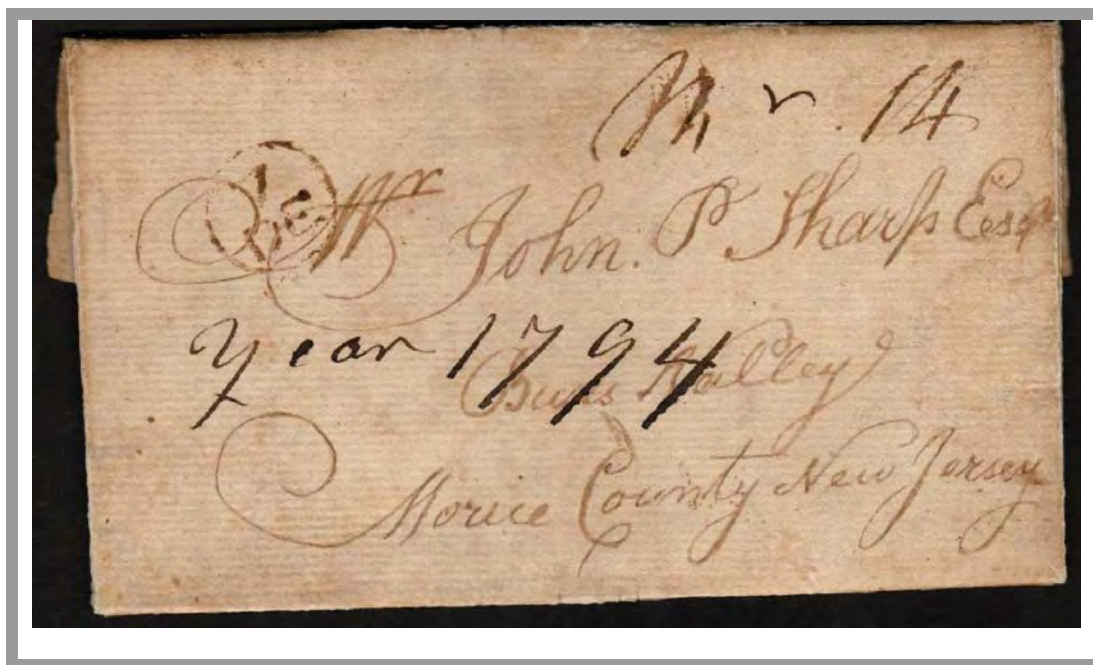 14
Mr John. P. Sharp Esqr
year 1794
Valley
Morice County New Jersey